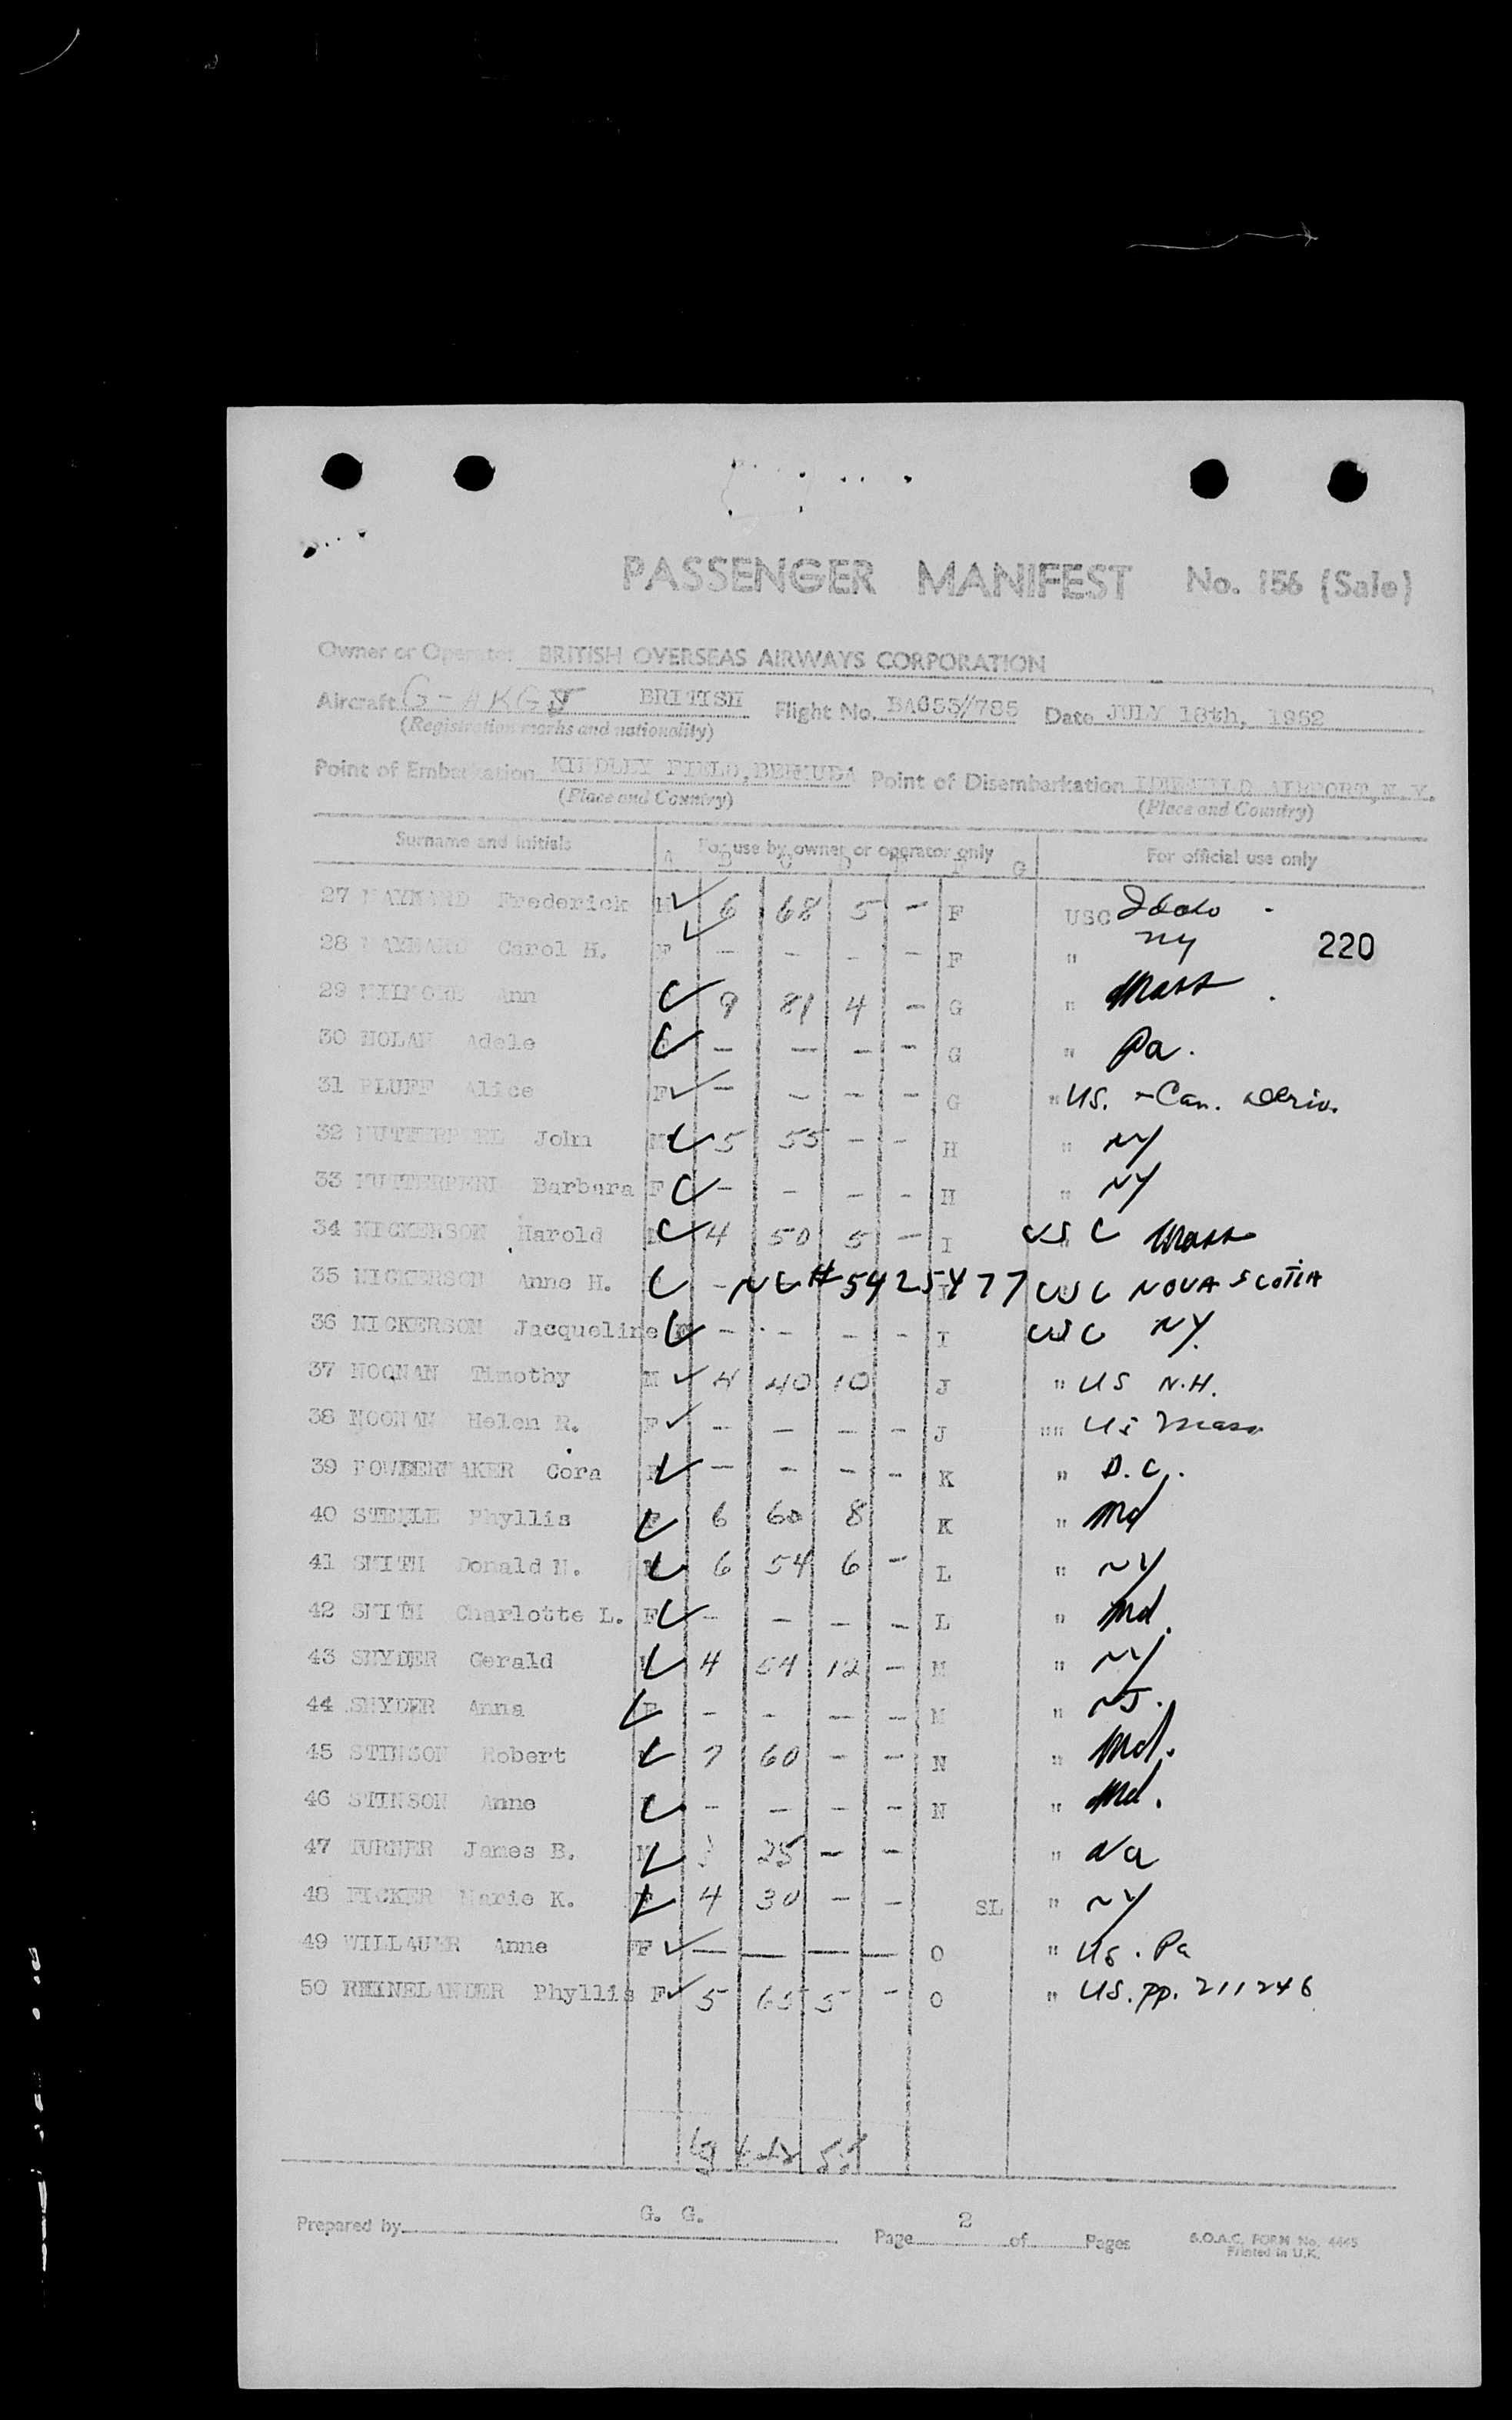 PASSENGER MANIFEST No. 156 (Sale)
Owner or Operator BRITISH OVERSEAS AIRWAYS CORPORATION
Aircraft G-AKG BRITISH Flight No. 785 Date JULY 18th, 1952
(Registration marks and nationality)
Point of Embarkation KINDLEY FIELD, BERMUDA Point of Disembarkation IDLEWILD AIRPORT, N.Y.
(Place and Country) (Place and Country)
Surname and initials For use by owner or operator only For official use only
A B C D E F G
27 MAYNARD Frederick M ✓ 6 68 5 - F USC
220
28 MAYNARD Carol H. F ✓ - - - - F " NY
29 Ann ✓ 9 81 4 - G " Mass
30 NOLAN Adele ✓ - - - - G " Pa.
31 PLUFF Alice F ✓ - - - - G " US. - Can. Deriv.
32 John M ✓ 5 55 - - H " NY
33 Barbara F ✓ - - - - H " NY
34 NICKERSON Harold M ✓ 4 50 5 - I USC Mass
35 NICKERSON Anne H. ✓ - NC# 5425477 I USC NOVA SCOTIA
36 NICKERSON Jacqueline F ✓ - - - - I USC NY.
37 NOONAN Timothy M ✓ 4 40 10 J " US N.H.
38 NOONAN Helen R. F ✓ - - - - J "" US Mass
39 POWDERMAKER Cora F ✓ - - - - K " D.C.
40 STEELE Phyllis F ✓ 6 60 8 K " Md
41 SMITH Donald N. M ✓ 6 54 6 - L " NY
42 SMITH Charlotte L. F ✓ - - - - L " Md.
43 SNYDER Gerald M ✓ 4 54 12 - M " NY
44 SNYDER Anna F ✓ - - - - M " NJ.
45 STINSON Robert ✓ 7 60 - - N " Md.
46 STINSON Anne F ✓ - - - - N " Md.
47 TURNER James B. M ✓ 25 - - " Va
48 FICKER Marie K. F ✓ 4 30 - - SL " NY
49 WILLAUER Anne F ✓ - - - - O " US. Pa
50 RHINELANDER Phyllis F ✓ 5 65 5 - O " US. pp. 211246
Prepared by G. G. Page 2 of Pages
B.O.A.C. FORM No. 4445
Printed in U.K.